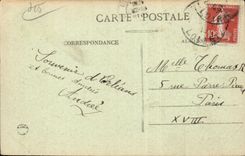 CARTE POSTALE
CORRESPONDANCE
Souvenir d'Orléans
et bonnes amitiés
André
Melle Thomas
5 rue Pierre
Paris
XVIII
10